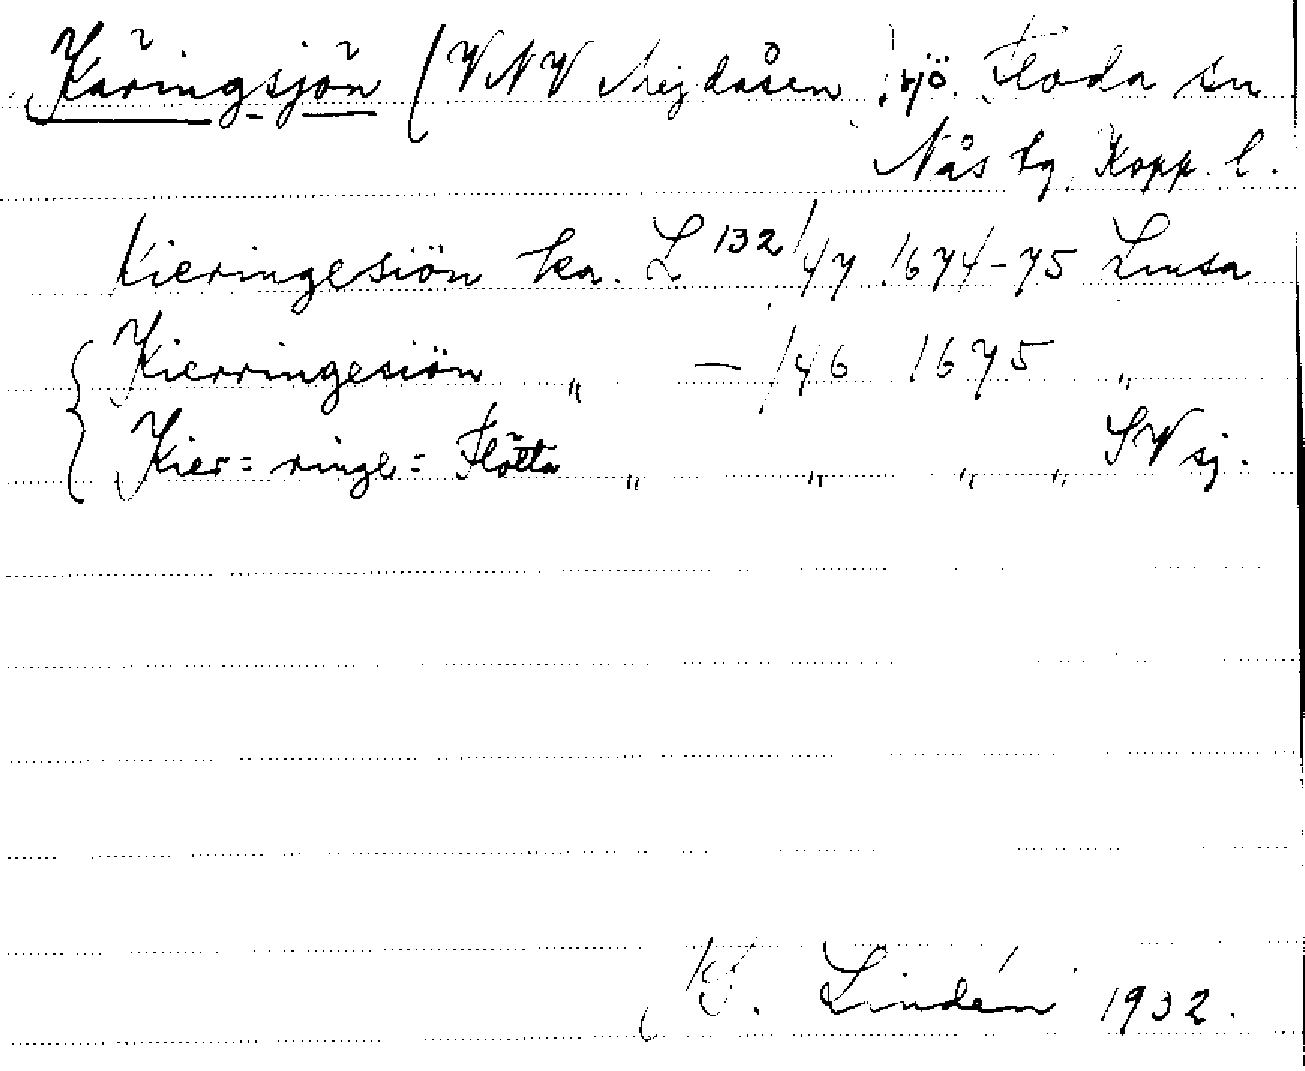 Käringsjön (VNV Mejdåsen) sjö. Floda sn
Nås hg, Kopp. l.
Kieringesiön ka. L 132/47 1674-75 Lmsa
Kierringesiön " — /46 1675 "
Kier= ringe= Flötta " " " " SV sj.
Lindén 1932.